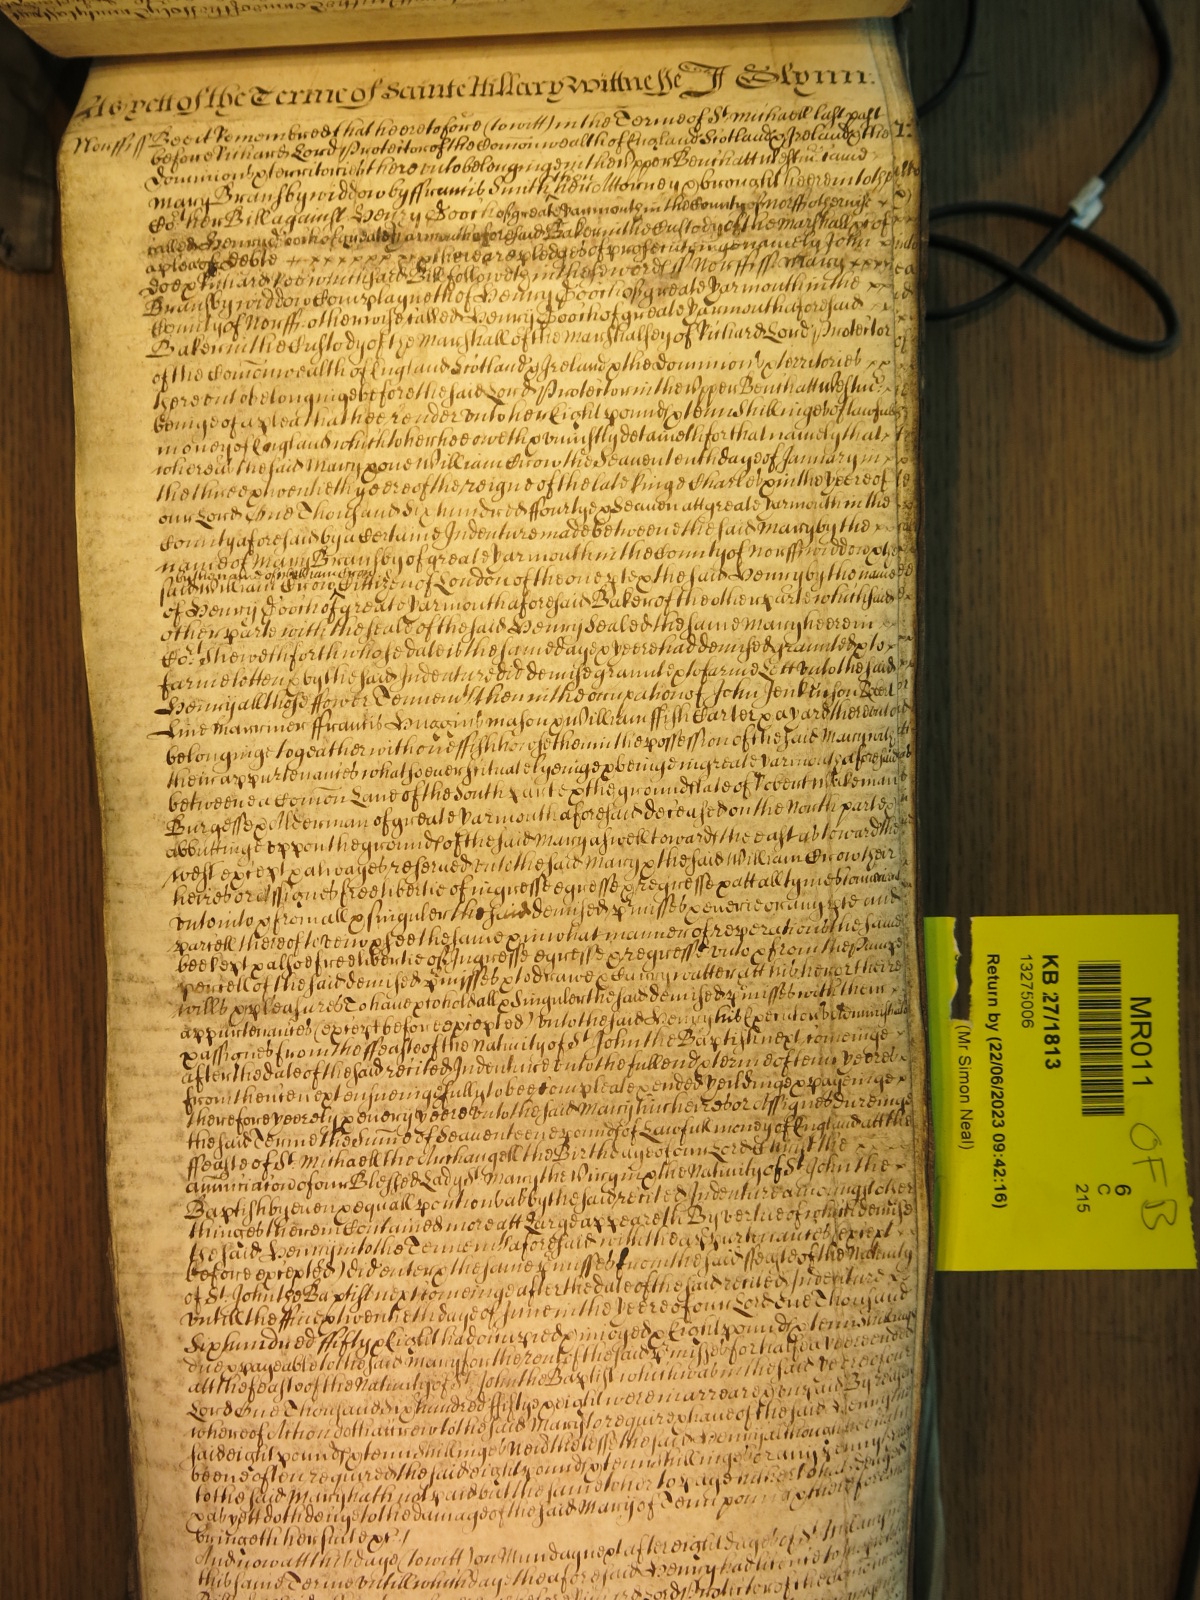 As yett of the Terme of Sainte Hillary Wittnesse J Glynn.
Norff ss Bee it Remembred that heeretofore (to witt) in the Terme of St Michaell last past
before Richard Lord Protector of the Comonwealth of England Scotland & Ireland & the
Dominions & territories thereunto belonginge in the Upper Bench att Westm came
Mary Bransby widdow by ffrancis Smith then her Attorney & brought heere into the
Cort her Bill against Henry Gooch of greate Yarmouth in the County of Norff otherwise
called Henry Gooch of greate Yarmouth aforesaid Baker in the Custody of the Marshall &c of
a plea of debte & there are pledges of prosecutinge namely John
doe & Richard Roe which said Bill followeth in these words ss Norff ss Mary
Bransby widdow Complayneth of Henry Gooch of greate Yarmouth in the
County of Norff otherwise called Henry Gooch of greate Yarmouth aforesaid
Baker in the Custody of the Marshall of the Marshalsey of Richard Lord Protector
of the Comonwealth of England Scotland & Ireland & the Dominions & territories
thereunto belonginge before the said Lord Protector in the Upper Bench att Westm
beinge of a plea that hee render unto her Eight pounds & tenn shillinges of lawfull
money of England which to her hee oweth & uniustly detaineth for that namely that
whereas the said Mary & one William Crow the Seaventeenth day of January in
the three & twentieth yeere of the reigne of the late Kinge Charles & in the yeere of
our Lord One Thousand Six hundred ffourty & Seaven att greate Yarmouth in the
County aforesaid by a Certaine Indenture made betweene the said Mary by the
name of Mary Bransby of greate Yarmouth in the County of Norff widdow & the
by the name of William Crow
said William Crow Cittizen of London of the one parte & the said Henry by the name
of Henry Gooch of greate Yarmouth aforesaid Baker of the other parte which said
other parte with the seale of the said Henry Sealed the same Mary heere in
Cort Sheweth forth whose date is the same day & yeere had demised graunted & to
farme letten & by the said Indenture did demise graunte & to farme Lett unto the said
Henry all those ffower Tenements then in the occupation of John Jenkinson
Line Marriner ffrancis Huggins mason & William ffish Carter & a yard thereunto
belonginge togeather with one ffishhowse then in the possession of the said Mary with
their appurtenances whatsoever scituate lyeinge & beinge in greate Yarmouth aforesaid
betweene a Comon Lane of the South parte & the ground late of Robert Wakeman
Burgesse & Alderman of greate Yarmouth aforesaid deceased on the North parte &
abuttinge uppon the ground of the said Mary aswell towards the east as towards the
west except & alwayes reserved unto the said Mary & the said William Crow their
heires or Assignes free libertie of ingresse egresse & regresse att all tymes
unto into & from all & singuler the said demised premisses & everie or any parte and
parcell thereof to veiw & see the same & in what manner of reperations the same
bee kept & alsoe free libertie of Ingresse egresse & regresse unto & from the
parcell of the said demised premisses & to drawe & carry watter att his her or theire
wills & pleasures To have & to hold all & Singuler the said demised premisses with their
appurtenances (except before excepted) unto the said Henry his Executors Administrators
& assignes from the ffeaste of the Nativity of St John the Baptist next comeinge
after the date of the said recited Indenture unto the full end & terme of tenn yeeres
from thence next ensueinge fully to bee compleate & ended yeildinge & payeinge
therefore yeerely & every yeere unto the said Mary her heires or Assignes dureinge
the said Terme the Summe of Seaventeene pounds of Lawfull money of England att the
ffeaste of St Michaell the Archangell the Birth day of our Lord Christ the
annunciacon of our Blessed Lady St Mary the Virgin & the Nativity of St John the
Baptist by even & equall portions as by the said recited Indenture amongst other
thinges therein Contained more att Large appeareth By vertue of which demise
the said Henry into the Tenements aforesaid with the appurtenances (except
before excepted) did enter & the same premisses from the said ffeaste of the Nativity
of St John the Baptist next comeinge after the date of the said recited Indenture
untill the ffive & twentieth day of June in the yeere of our Lord One Thousand
Six hundred ffifty & Eight had occupied & inioyed & Eight pounds & tenn shillings
due & payeable to the said Mary for the rent of the said premisses for halfe a yeere ended
att the feaste of the Nativity of St John the Baptist which was in the said yeere of our
Lord One Thousand Six hundred ffiftye & eight were in arreare & unpaid By reason
whereof Action doth accrew to the said Mary to require & have of the said Henry the
said eight pounds & tenn shillinges Neverthelesse the said Henry although
beene often required the said eight pounds & tenn shillinges or any penny
to the said Mary hath not paid but the same to her to pay
& as yett doth denye to the damage of the said Mary of Tenn pounds & therefore
bringeth her suite &c
And now att this day (to witt) on Munday next after eight dayes of St Hillary
this same Terme untill which day the aforesaid Henry had licence to
MR011
KB 27/1813
13275006
Return by (22/06/2023 09:42:16)
(Mr Simon Neal)
6
C
215
OFB